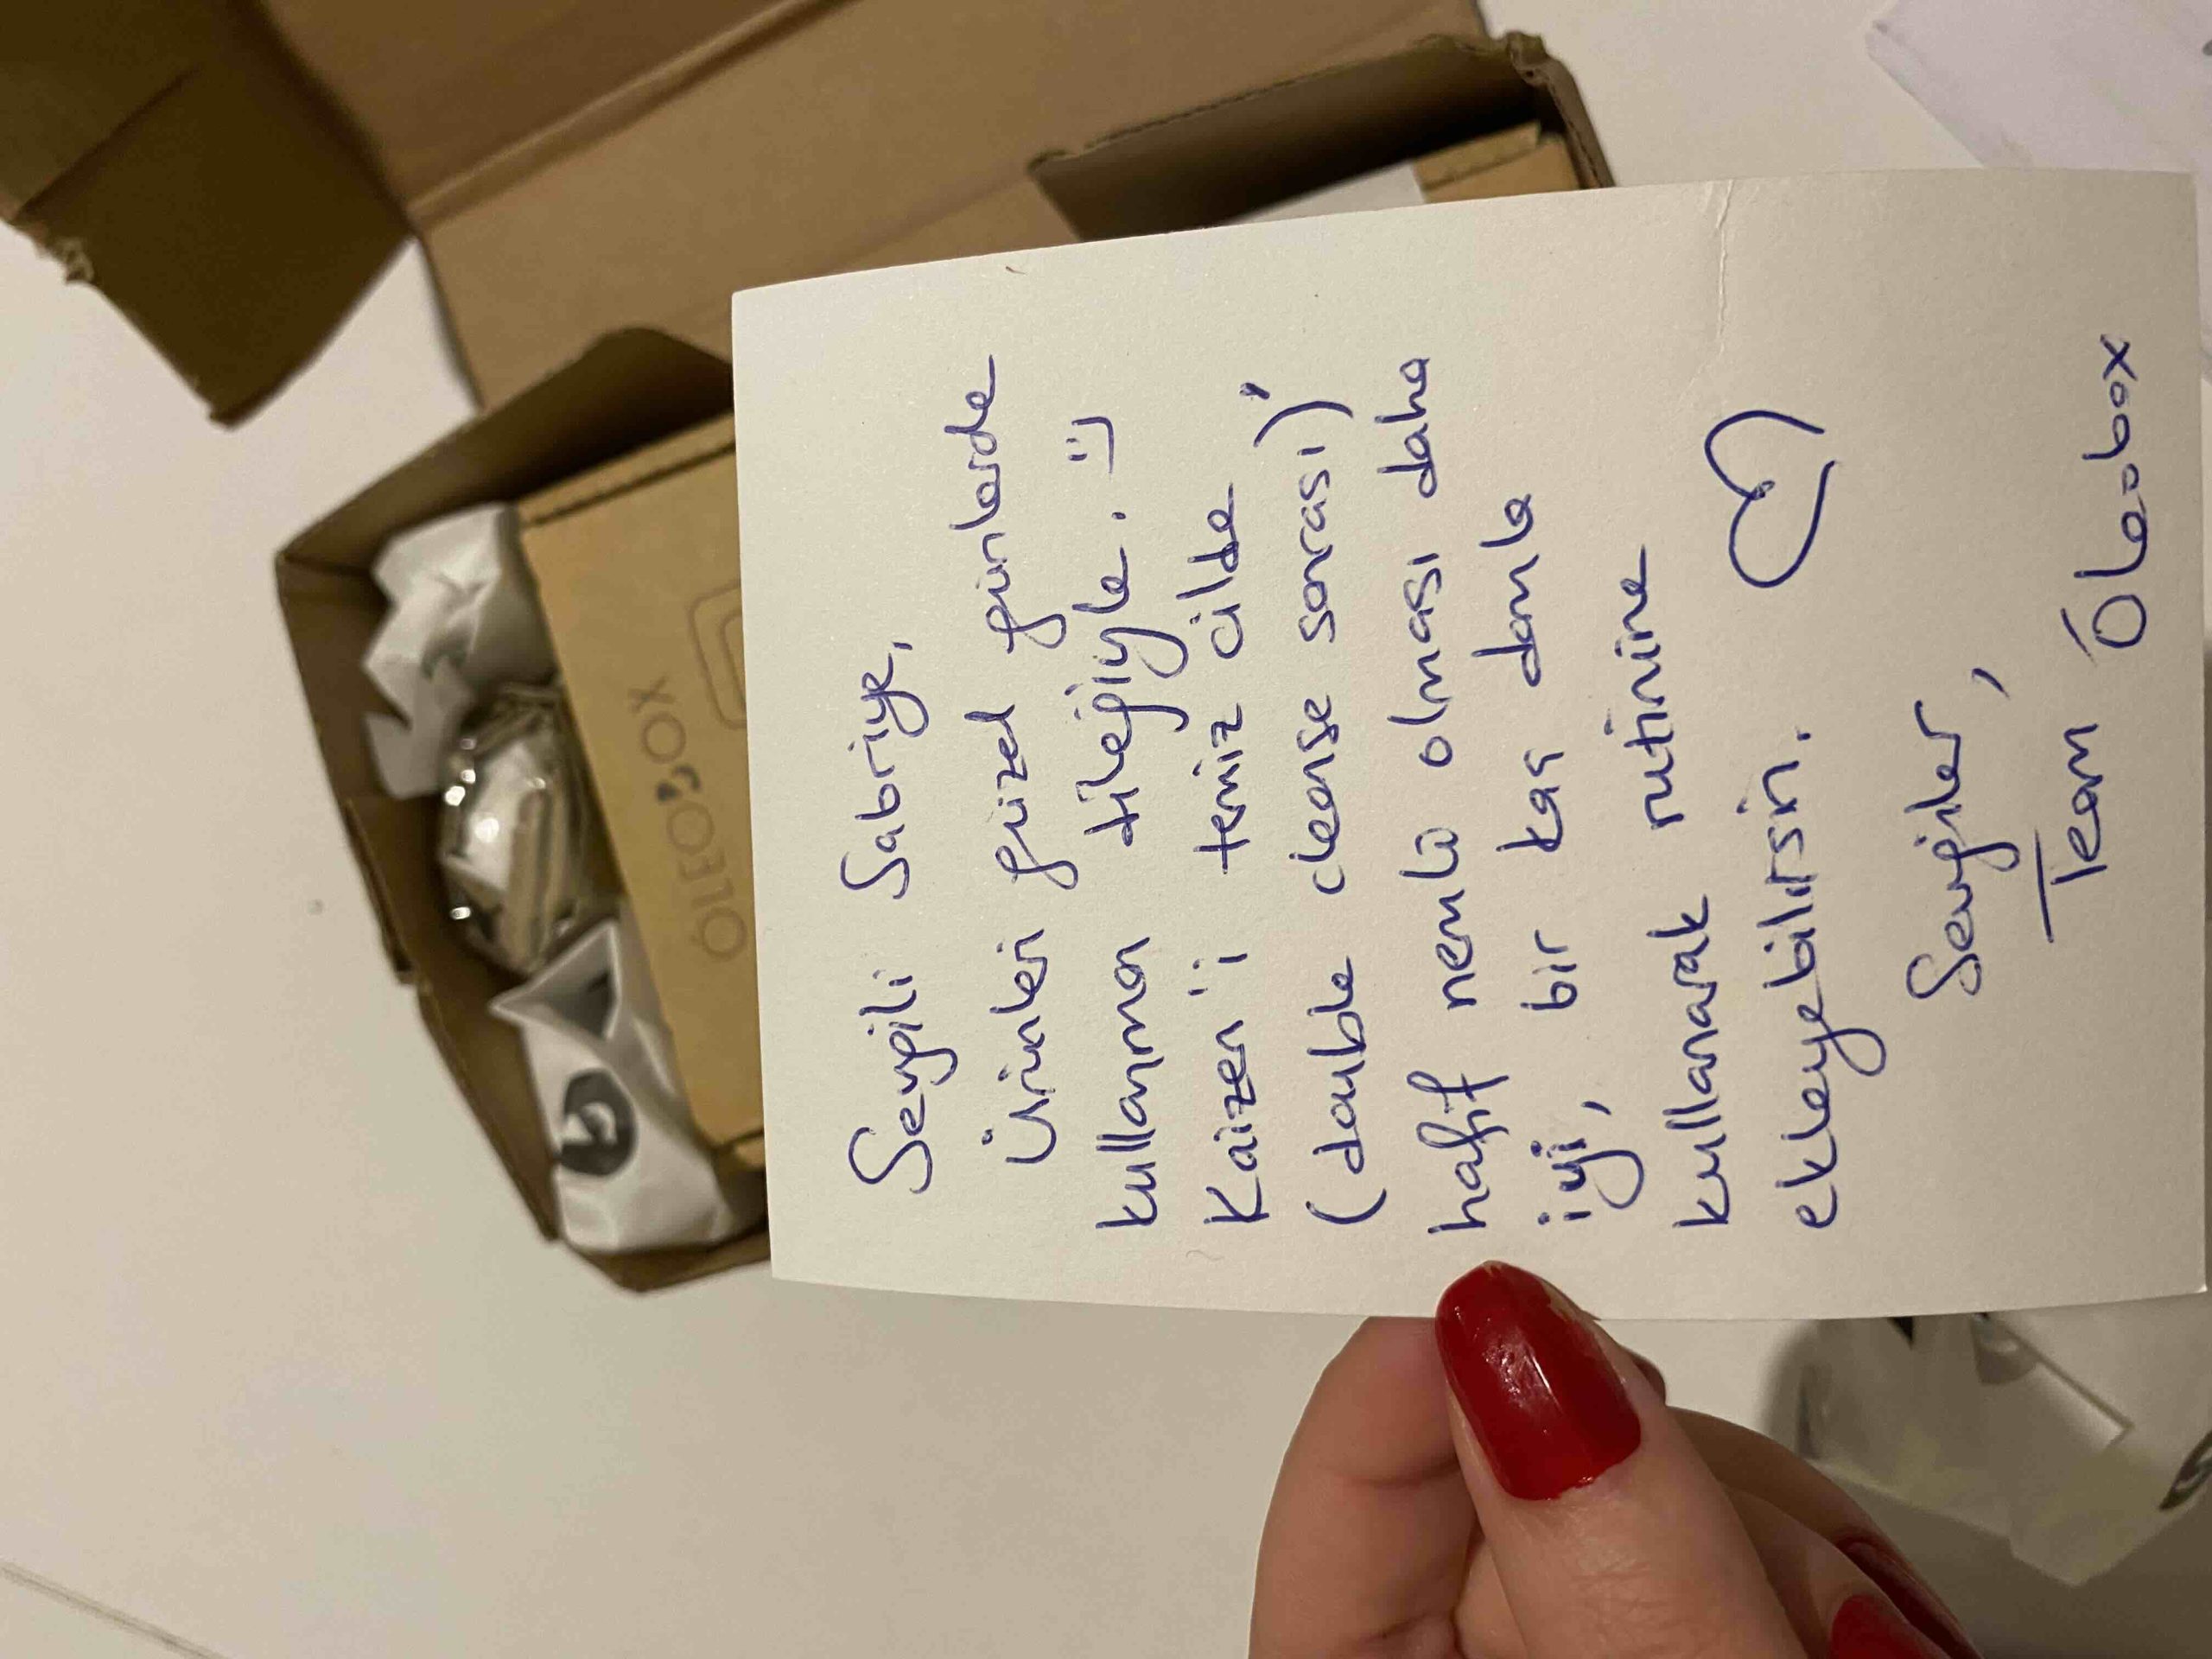 Sevgili Sabriye,
Ürünleri güzel günlerde
kullanman dileğiyle. :)
Kaizen'i temiz cilde
(double cleanse sonrası),
hafif nemli olması daha
iyi, bir kaç damla
kullanarak rutinine
ekleyebilirsin.
Sevgiler,
Team Óleobox
ÓLEOBOX